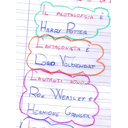 IL PROTAGONISTA È
HARRY POTTER
L'ANTAGONISTA È
LORD VOLDEMORT
L'AIUTANTE SONO
RON WEASLEY E
HERMIONE GRANGER